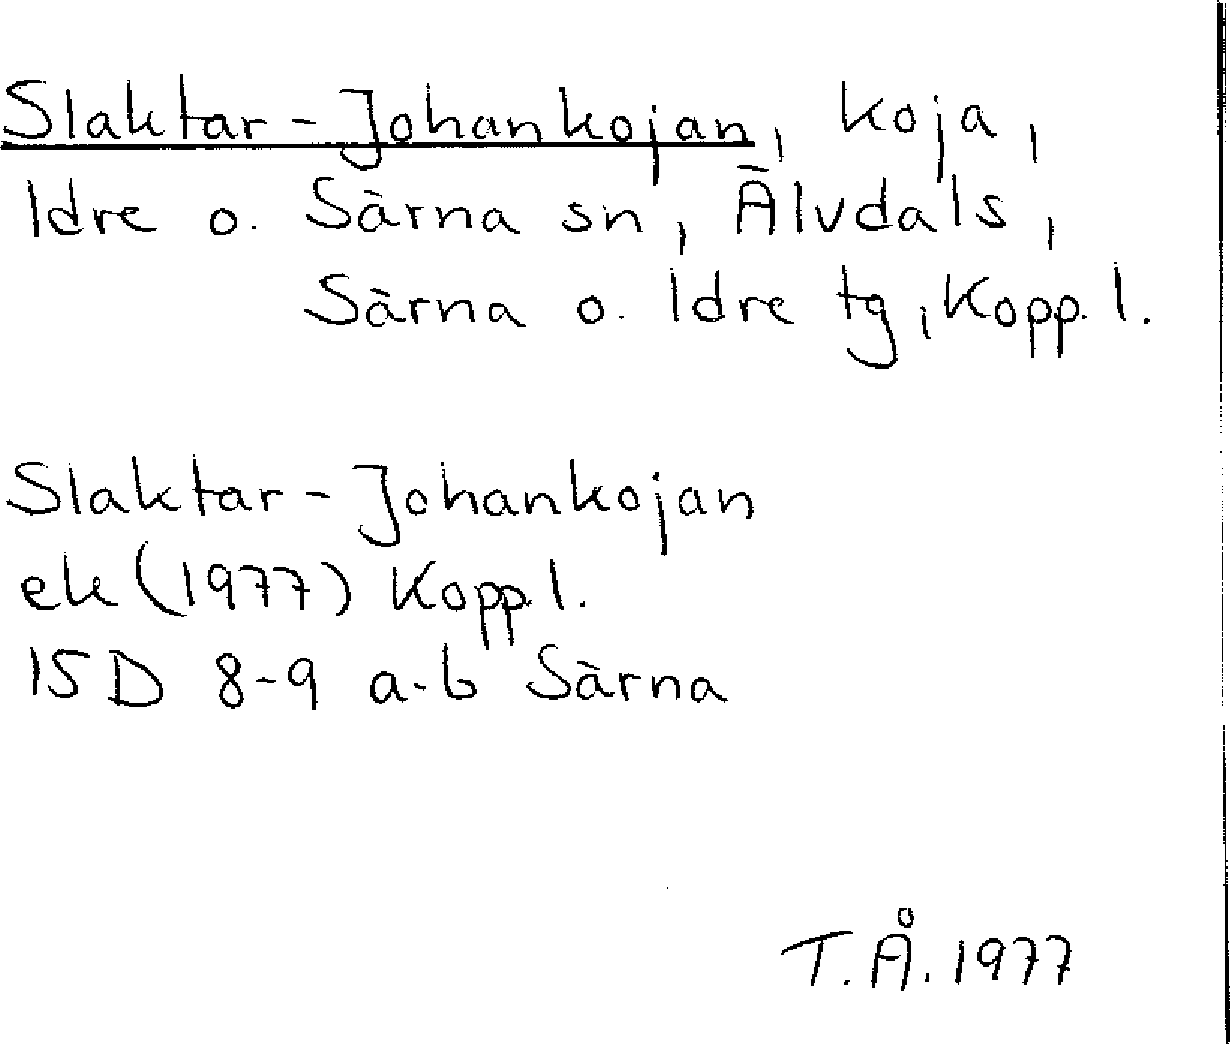 Slaktar-Johankojan, koja,
Idre o. Särna sn, Älvdals,
Särna o. Idre tg, Kopp. l.
Slaktar-Johankojan
ek (1977) Kopp l.
15 D 8-9 a-b Särna
T.Å. 1977